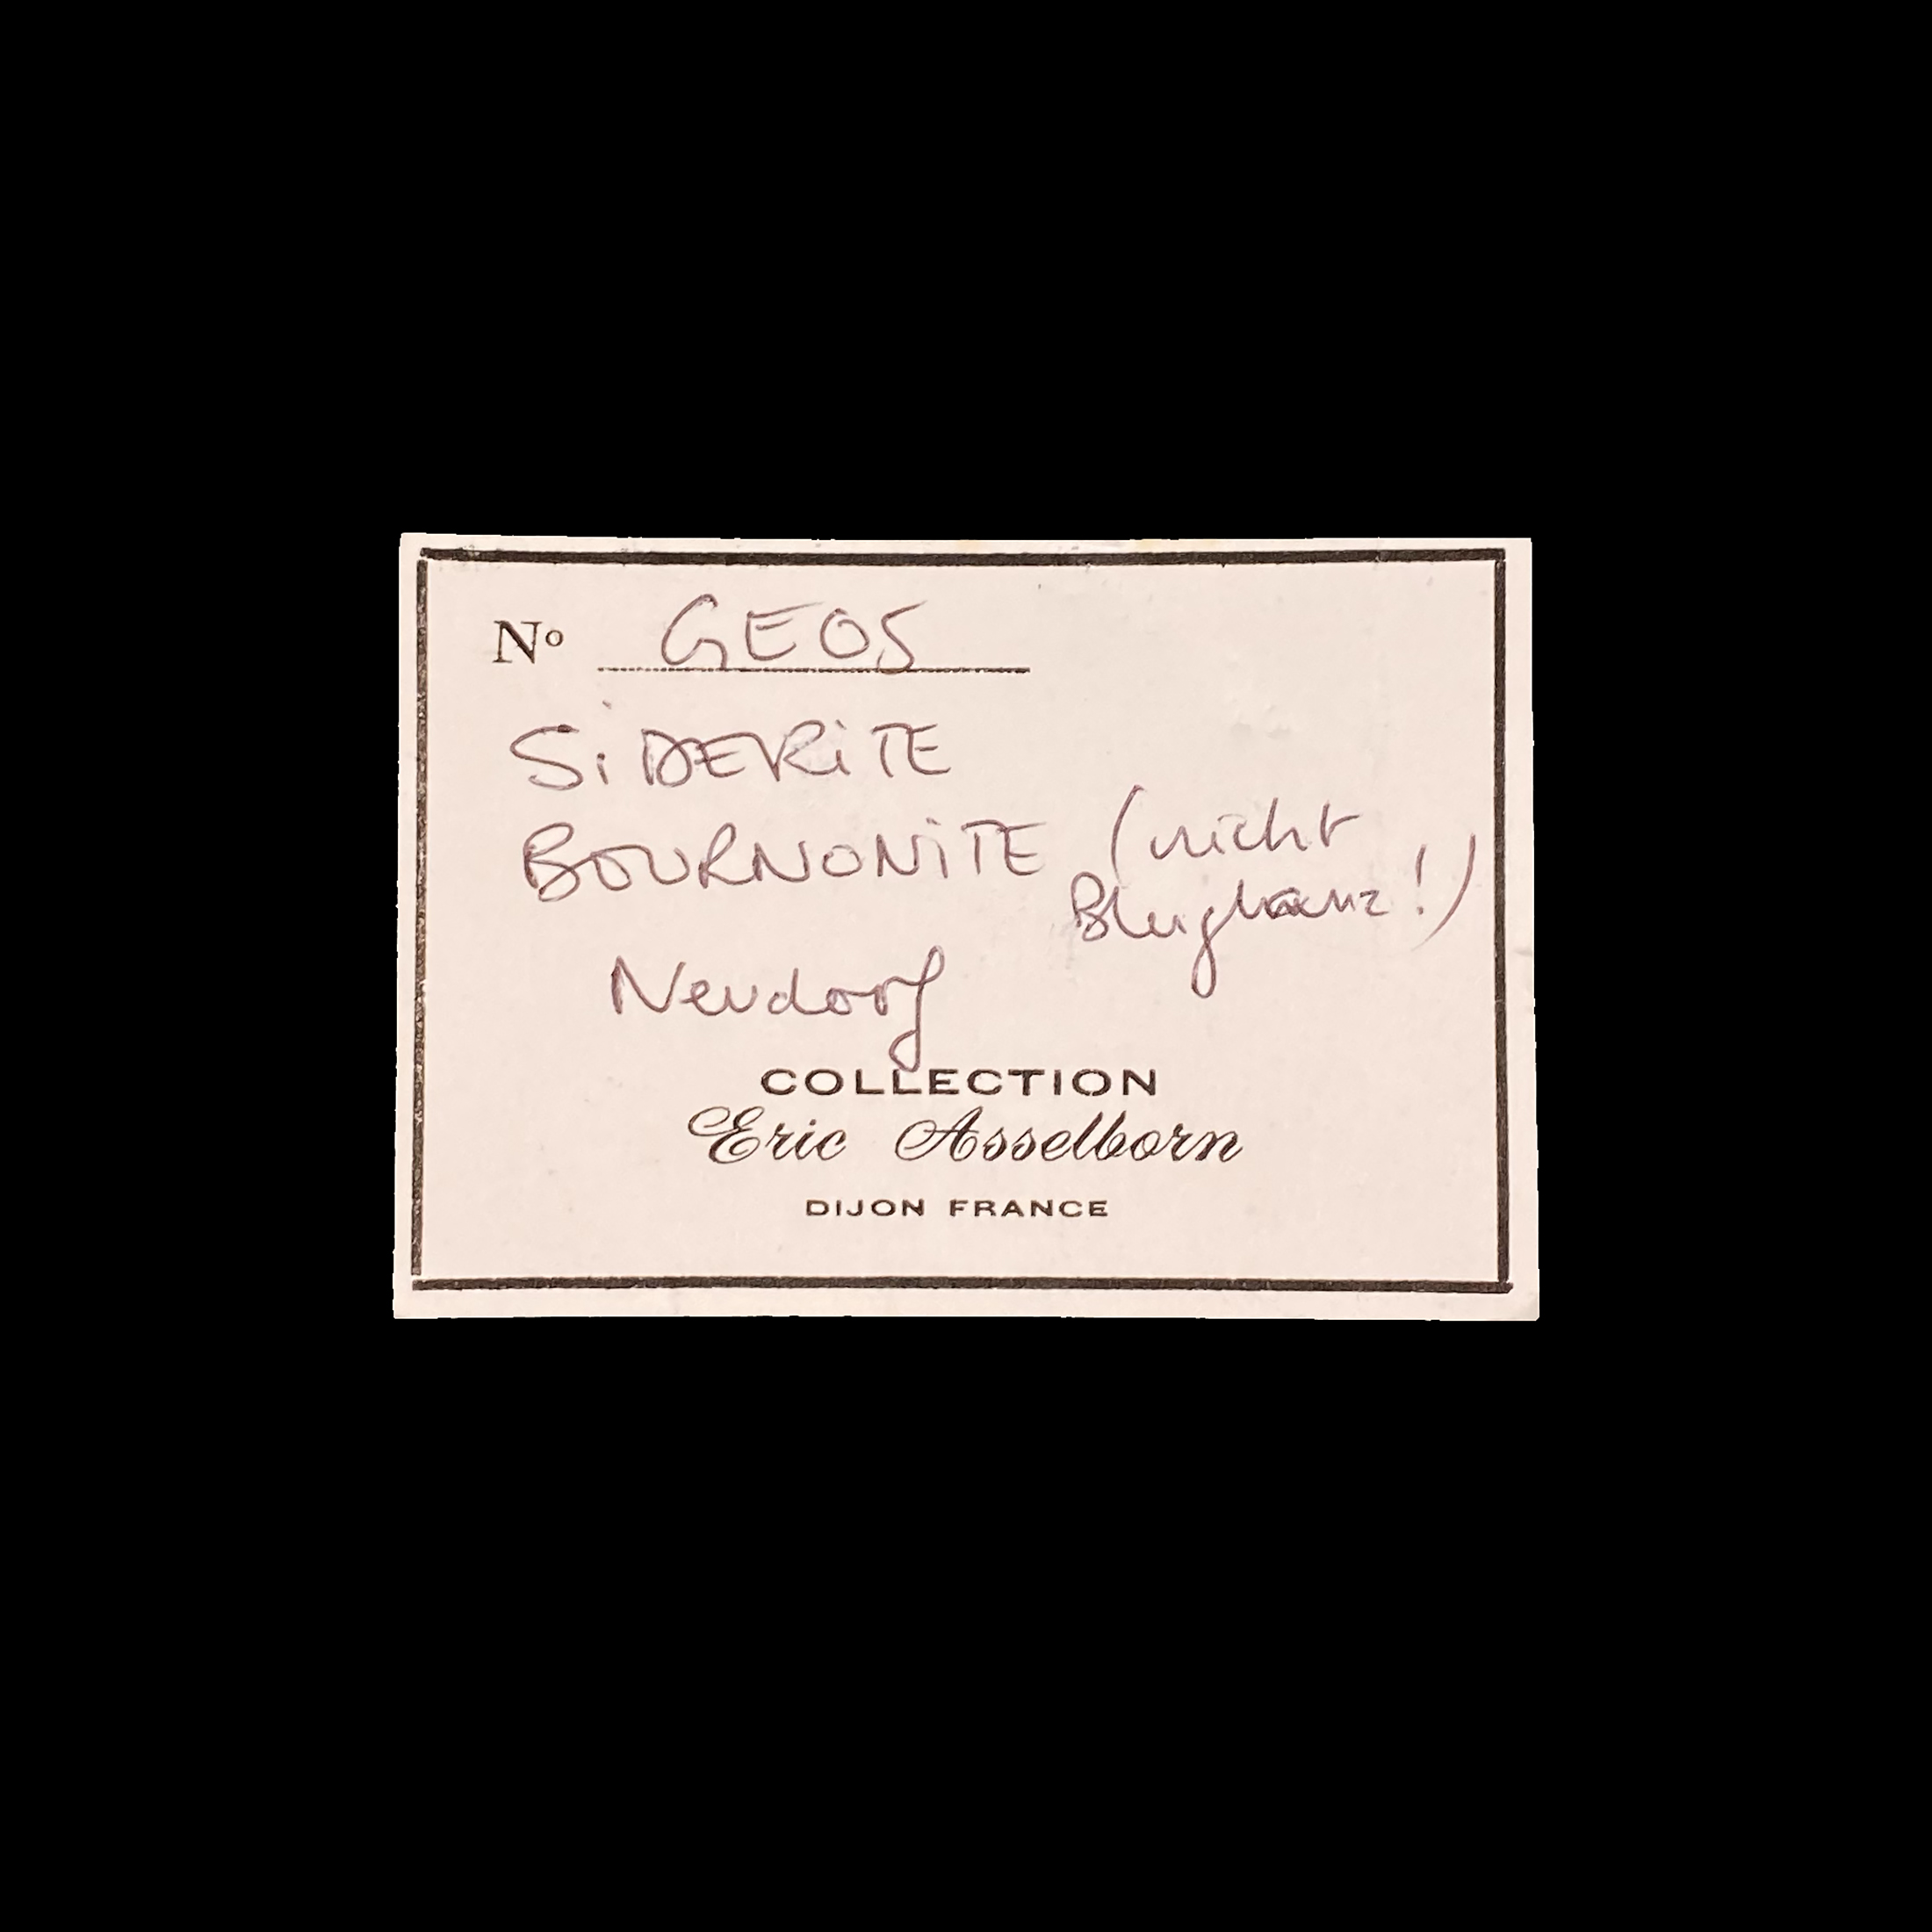 Nº GEOS
SiDERiTE
BOURNONiTE (nicht
Bleiglanz!)
Neudorf
COLLECTION
Eric Asselborn
DIJON FRANCE